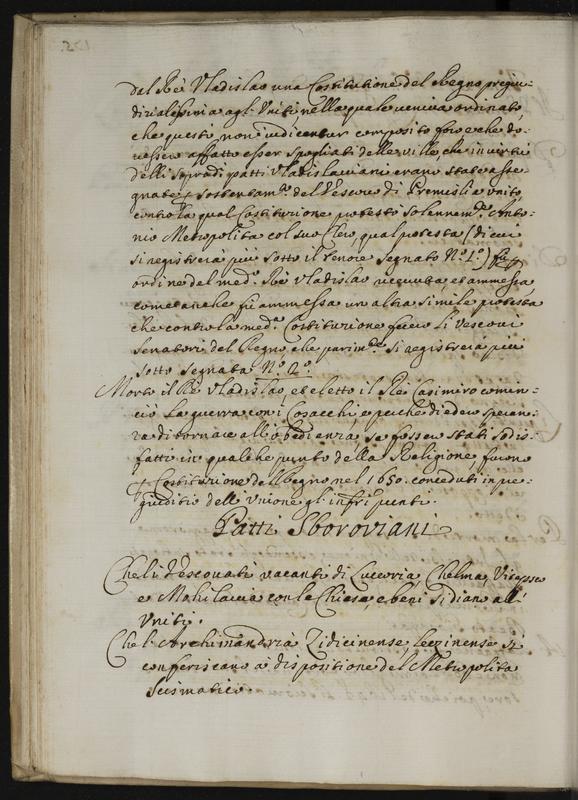 dal Rè Vladislao una Costitutione del Regno pregiu-
dizialissima agl' Uniti, nella quale veniva ordinato,
che questi non iudicentur composito foro e che do-
vessero affatto esser spogliati delle ville, che in virtù
delli sopradi patti Vladislaviani erano state asse-
gnate p sostentam.to del Vescovo di Premislia Unito,
contro la qual Costituzione protestò solennem.te Anto-
nio Metropolita col suo Clero, qual protesta (di cui
si registrerà più sotto il tenore segnato N.o 1.o) fù p
ordine del med.o Rè Vladislao ricevuta et ammessa,
come anche fù ammessa un altra simile protesta
che contro la med.a Costituzione fecero li Vescovi
Senatori del Regno che parim.te si registrerà più
sotto segnata N.o 2.o
Morto il Rè Vladislao, et eletto il Rè Casimiro comin-
ciò la guerra con i Cosacchi, e perche diedero speran-
za di tornare all' obedienza, se fossero stati sodis-
fatti in qualche punto della Religione, furno
p Costituzione del Regno nel 1650. conceduti in pre-
giuditio dell' Unione gl' infri punti.
Patti Sboroviani
Che li Vescovati vacanti di Luceoria, Chelma, Vitepsco
e Mohilavia con le Chiese, e beni si diano all'
Uniti.
Che l' Archimandria Zidicinense, Leczinense si
conferiscano a dispositione del Metropolita
Scismatico.